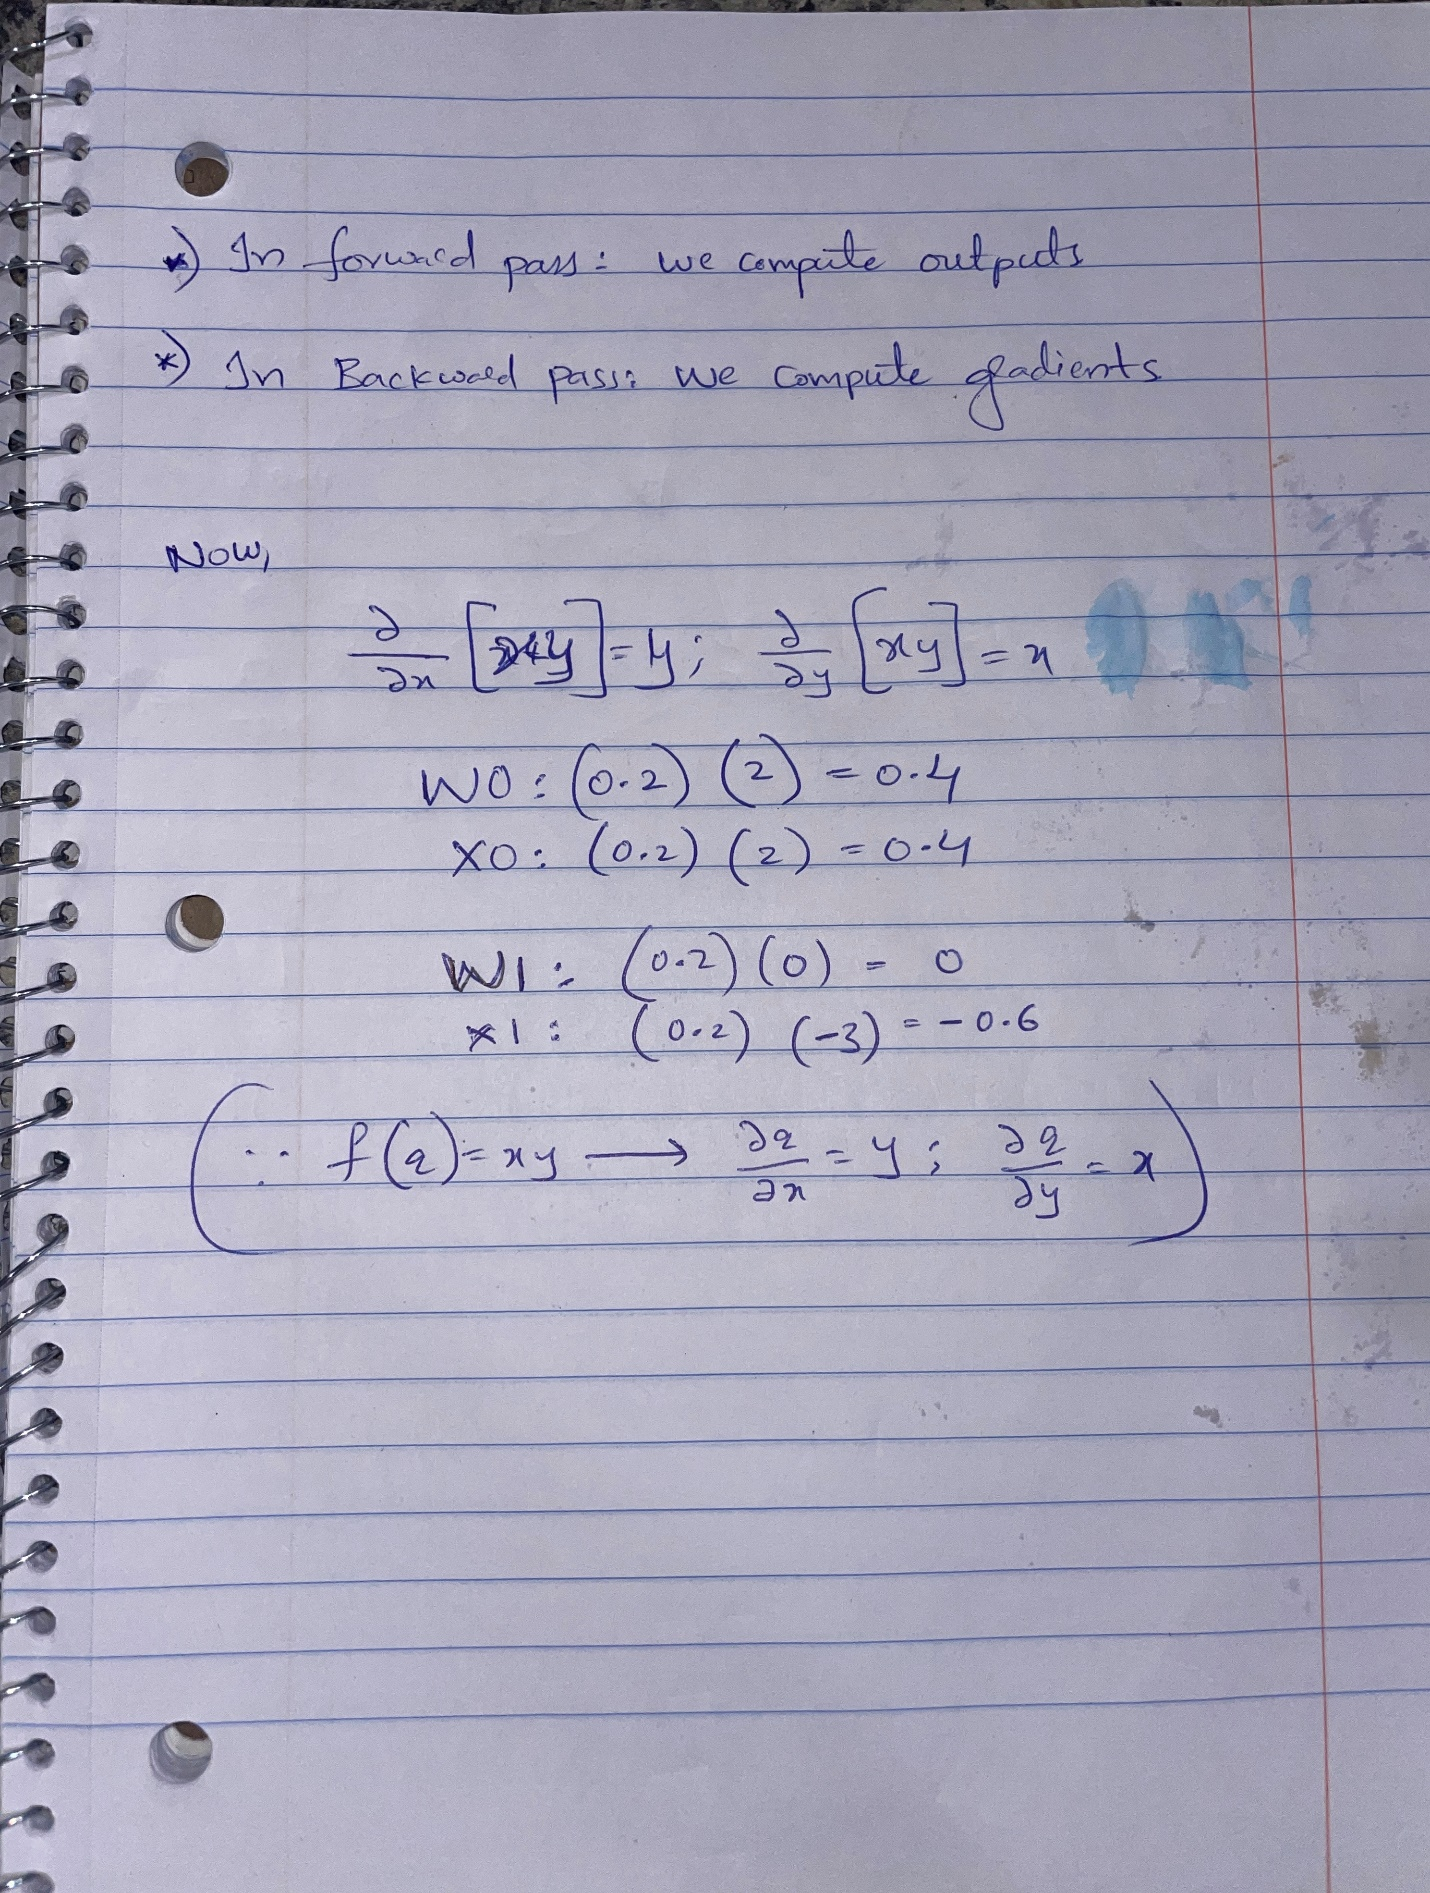 *) In forward pass: we compute outputs
*) In Backward pass: we compute gradients
Now,
∂/∂x [xy] = y; ∂/∂y [xy] = x
W0: (0.2) (2) = 0.4
X0: (0.2) (2) = 0.4
W1: (0.2) (0) = 0
x1: (0.2) (-3) = -0.6
(∵ f(q) = xy → ∂q/∂x = y; ∂q/∂y = x)